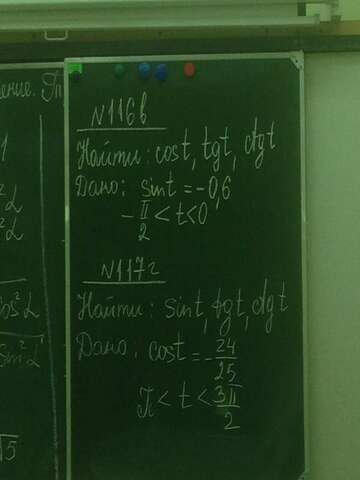 ение. Гп
1
²α
²α
cos²α
sin²α
√5
N116в
Найти: cost, tgt, ctgt
Дано: sint = -0,6
-π/2 < t < 0
N117г
Найти: sint, tgt, ctgt
Дано: cost = -24/25
π < t < 3π/2